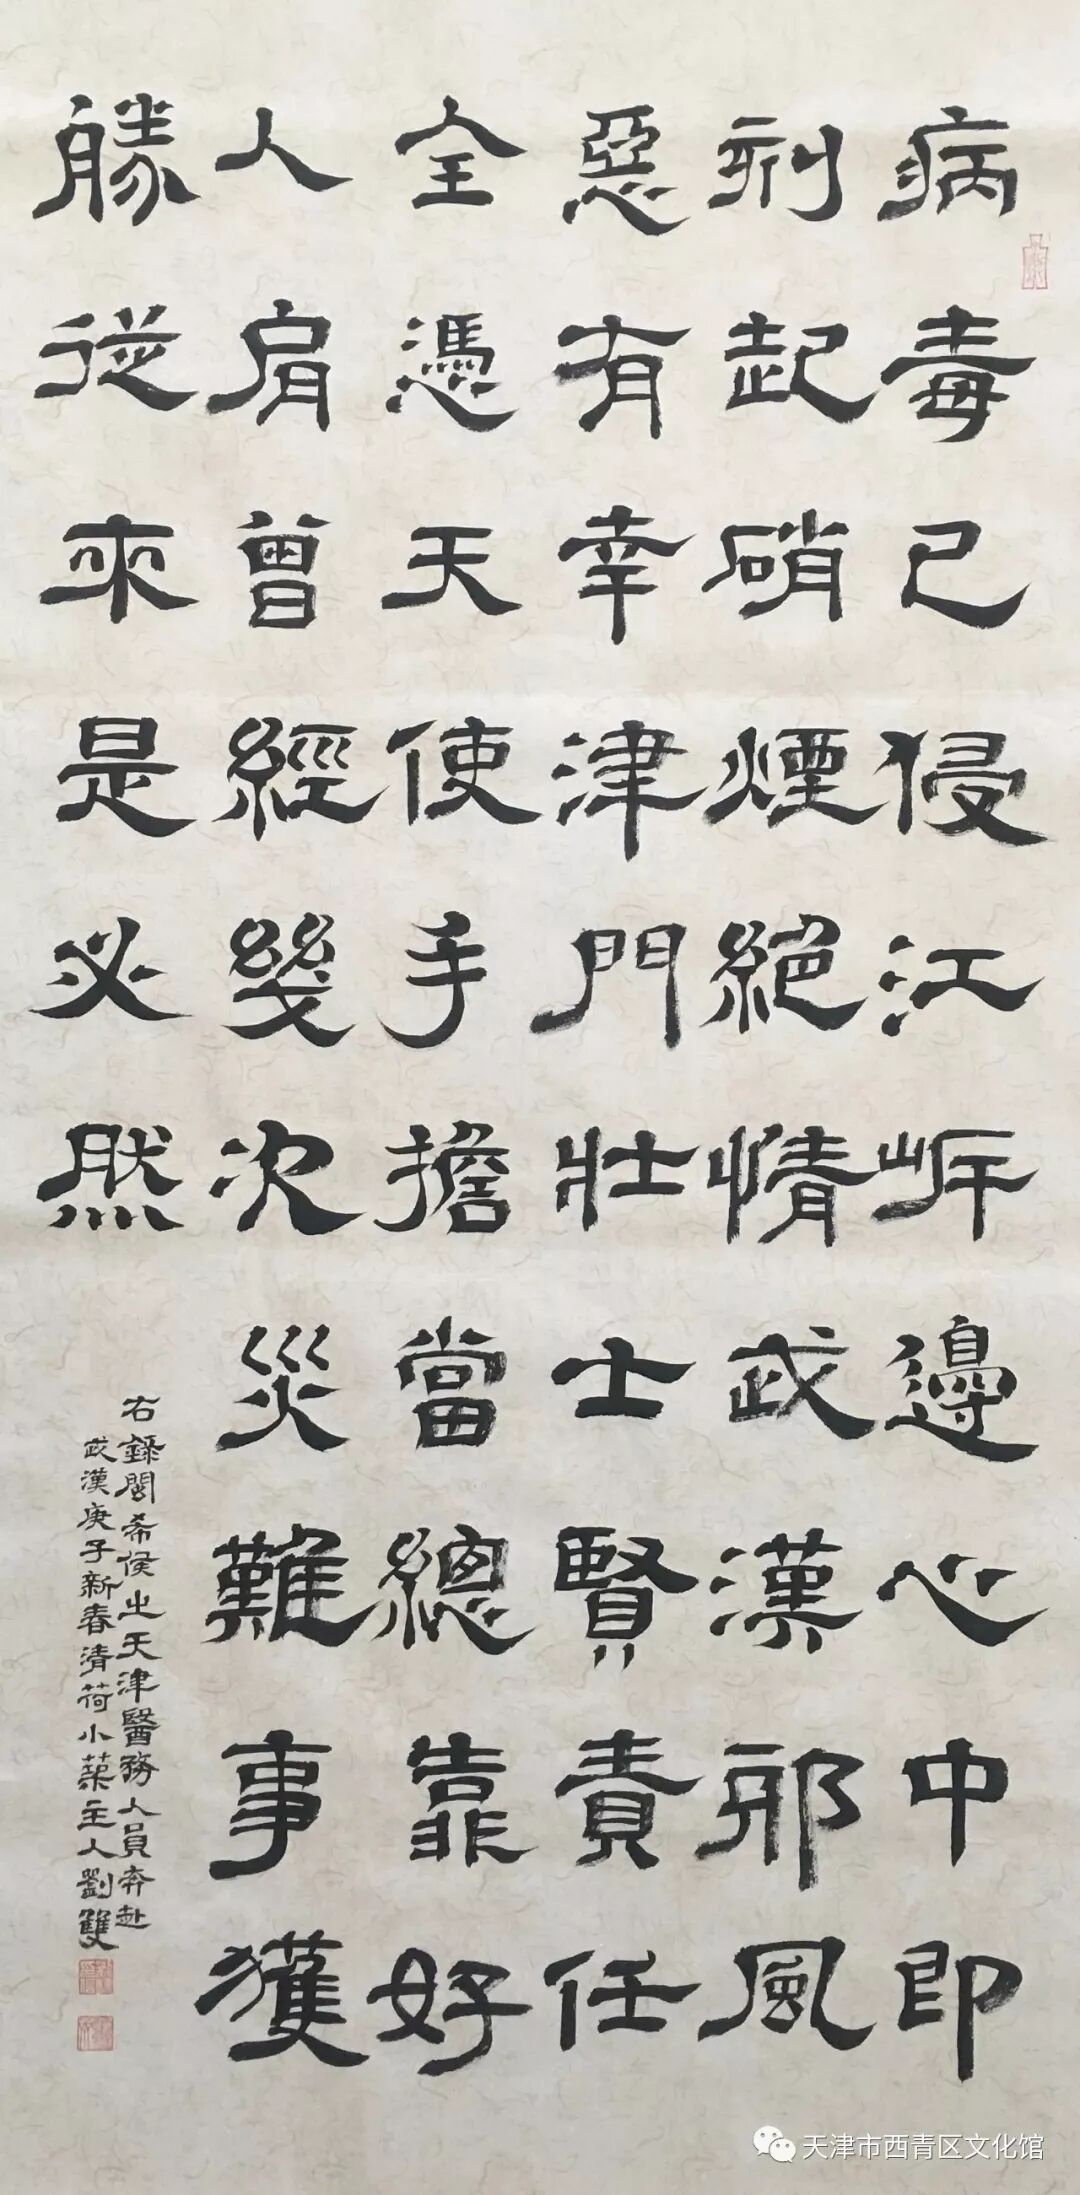 病毒已侵江岸邊心中即
刻起硝煙絕情武漢邪風
惡有幸津門壯士賢責任
全憑天使手擔當總靠好
人肩曾經幾次災難事獲
勝從來是必然
右錄閻希侯之天津醫務人員奔赴
武漢庚子新春清荷小築主人劉雙
天津市西青区文化馆